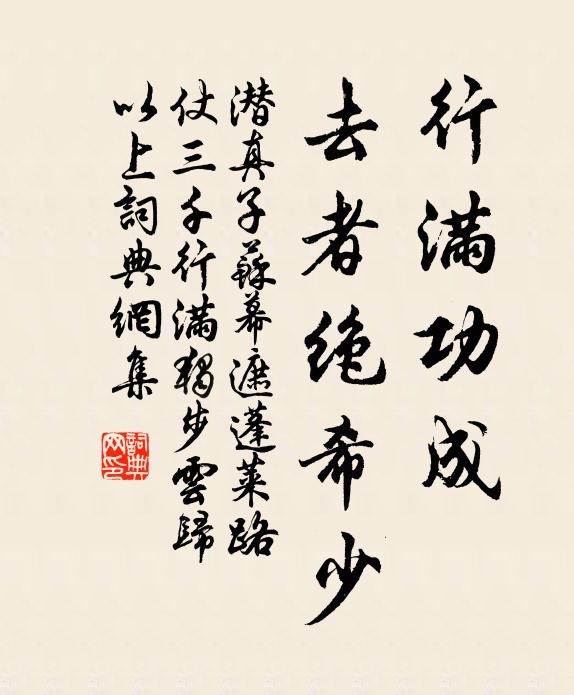 行满功成
去者绝希少
潜真子蘇幕遮蓬莱路
仗三千行满獨步雲歸
以上詞典網集
詞典網印